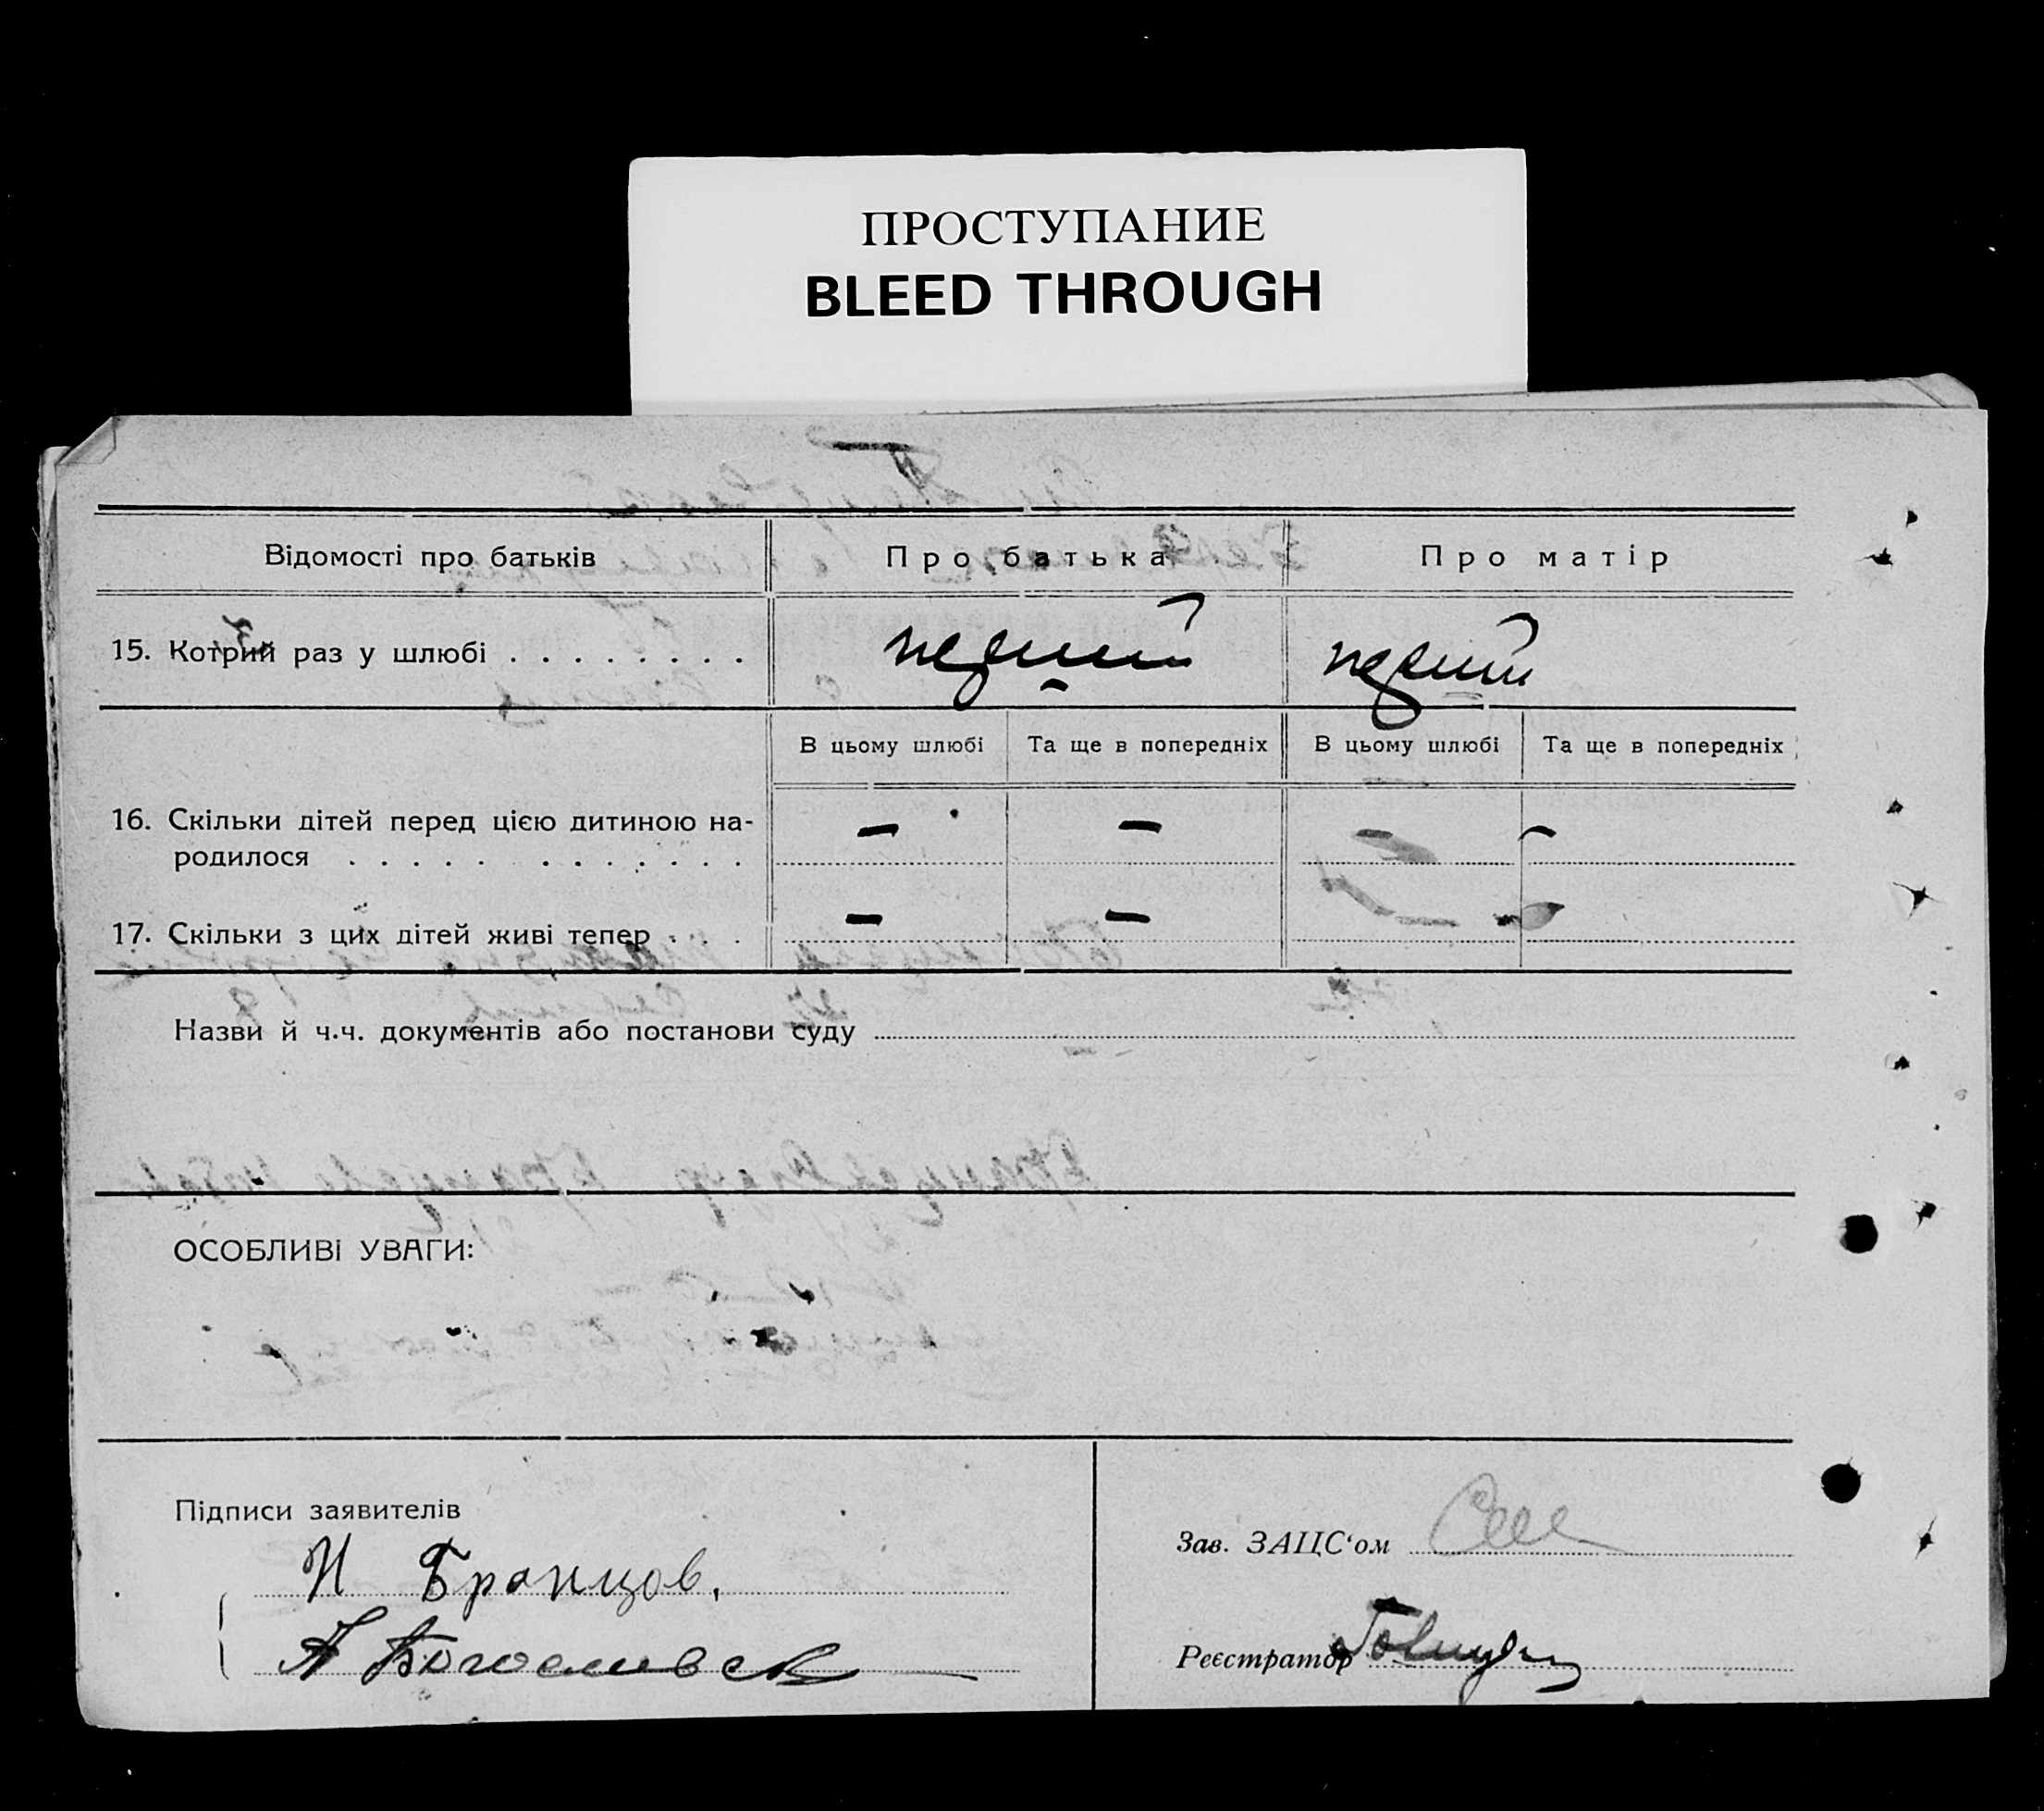 ПРОСТУПАНИЕ
BLEED THROUGH
Відомості про батьків Про батька Про матір
15. Котрий раз у шлюбі . . . . . . . . перший перший
В цьому шлюбі Та ще в попередніх В цьому шлюбі Та ще в попередніх
16. Скільки дітей перед цією дитиною на- — — — —
родилося . . . . . . . . . . . .
17. Скільки з цих дітей живі тепер . . . — — — —
Назви й ч.ч. документів або постанови суду
ОСОБЛИВІ УВАГИ:
Підписи заявителів
Зав. ЗАЦС‘ом
И Бранцов.
Реєстратор
А Богословск